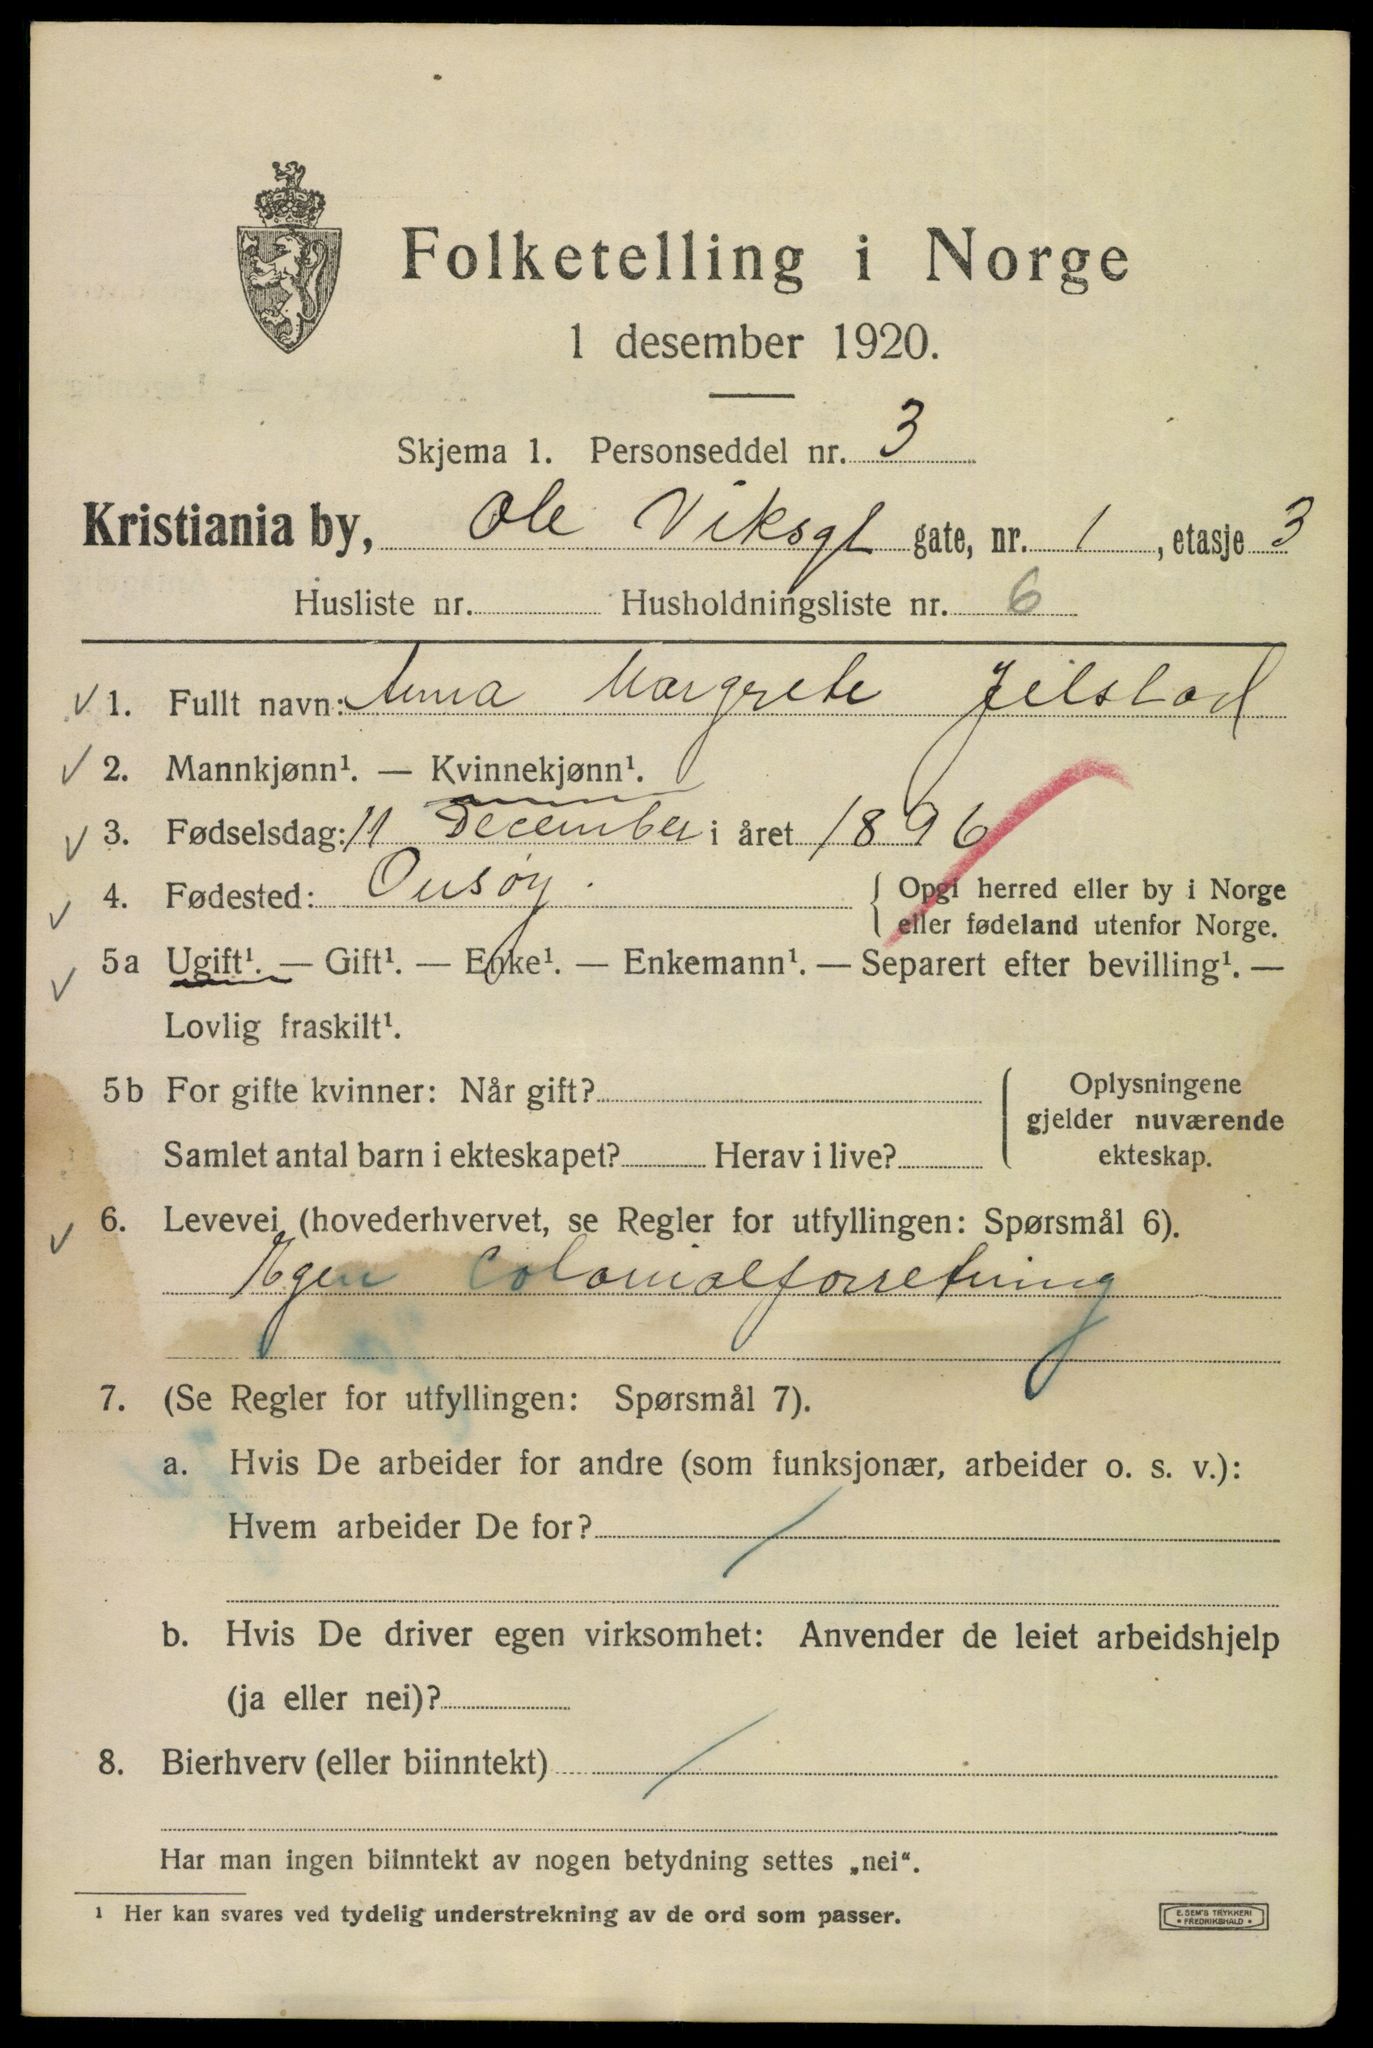 Folketelling i Norge
1 desember 1920.
Skjema 1. Personseddel nr. 3
Kristiania by, Ole Viksgt gate, nr. 1, etasje 3
Husliste nr. Husholdningsliste nr. 6
1. Fullt navn: Anna Margrete Jelstad
2. Mannkjønn¹. — Kvinnekjønn¹.
3. Fødselsdag: 11 December i året 1896
4. Fødested: Onsøy. Opgi herred eller by i Norge
eller fødeland utenfor Norge.
5a Ugift¹. — Gift¹. — Enke¹. — Enkemann¹. — Separert efter bevilling¹. —
Lovlig fraskilt¹.
5b For gifte kvinner: Når gift? Oplysningene
gjelder nuværende
Samlet antal barn i ekteskapet? Herav i live? ekteskap.
6. Levevei (hovederhvervet, se Regler for utfyllingen: Spørsmål 6).
Egen Colonialforretning
7. (Se Regler for utfyllingen: Spørsmål 7).
a. Hvis De arbeider for andre (som funksjonær, arbeider o. s. v.):
Hvem arbeider De for? /
b. Hvis De driver egen virksomhet: Anvender de leiet arbeidshjelp
(ja eller nei)?
8. Bierhverv (eller biinntekt) /
Har man ingen biinntekt av nogen betydning settes „nei“.
¹ Her kan svares ved tydelig understrekning av de ord som passer.
E. SEM'S TRYKKERI
• FREDRIKSHALD •